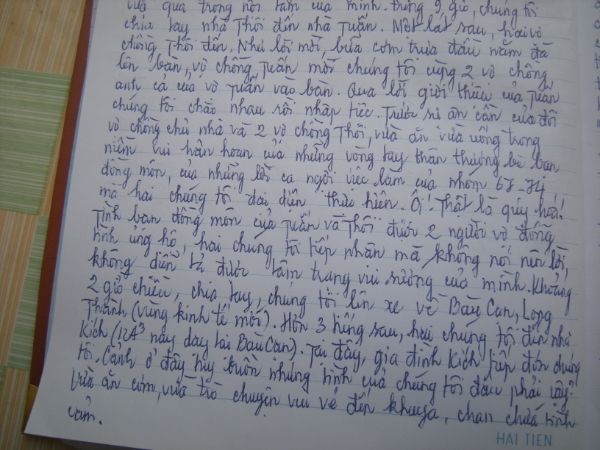 vừa qua trong nội tâm của mình. Đúng 9 giờ, chúng tôi
chia tay nhà Thôi đến nhà Tuấn. Một lát sau, hai vợ
chồng Thôi đến. Như lời mời, bữa cơm trưa đầu năm đã
lên bàn, vợ chồng Tuấn mời chúng tôi cùng 2 vợ chồng
anh cả của vợ Tuấn vào bàn. Qua lời giới thiệu của Tuấn
chúng tôi chào nhau rồi nhập tiệc. Trước sự ân cần của đôi
vợ chồng chủ nhà và 2 vợ chồng Thôi, vừa ăn vừa uống trong
niềm vui hân hoan của những vòng tay thân thương bè bạn
đồng môn, của những lời ca ngợi việc làm của nhóm 67-74
mà hai chúng tôi đại diện thực hiện. Ôi! Thật là quý hoá!
Tình bạn đồng môn của Tuấn và Thôi được 2 người vợ đồng
tình ủng hộ, hai chúng tôi tiếp nhận mà không nói nên lời,
không diễn tả được tâm trạng vui sướng của mình. Khoảng
2 giờ chiều, chia tay, chúng tôi lên xe về Bàu Cạn, Long
Thành (vùng kinh tế mới). Hơn 3 tiếng sau, hai chúng tôi đến nhà
Kích (12A3 nay dạy tại Bàu Cạn). Tại đây, gia đình Kích tiếp đón chúng
tôi. Cảnh ở đây tuy buồn nhưng tình của chúng tôi đâu phải vậy:
Vừa ăn cơm, vừa trò chuyện vui vẻ đến khuya, chan chứa tình
cảm.
HAI TIEN